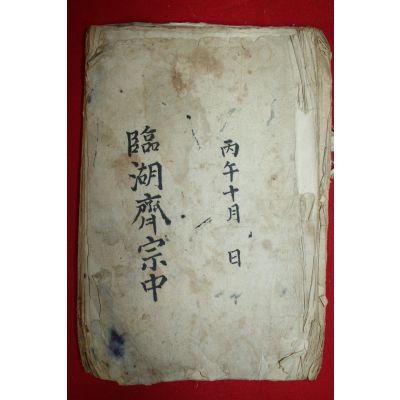 丙午十月 日
臨湖齊宗中